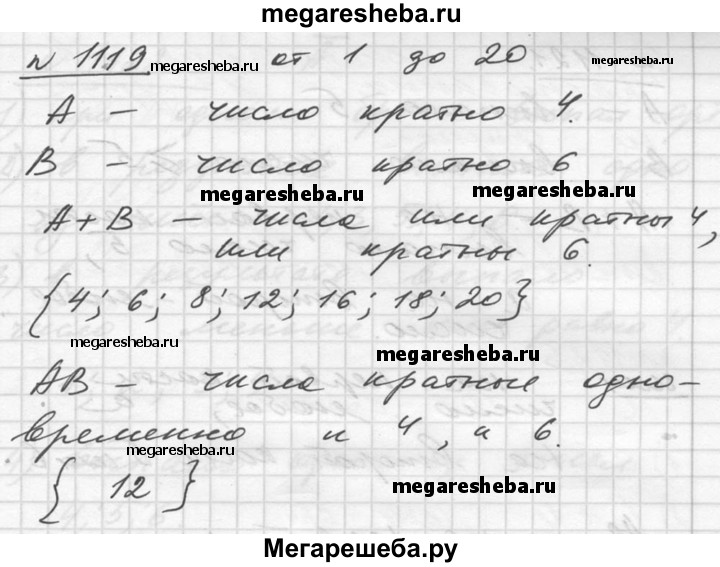 megaresheba.ru
N 1119 megaresheba.ru от 1 до 20 megaresheba.ru
A — число кратно 4.
B — число кратно 6
megaresheba.ru megaresheba.ru
A+B — числа или кратны 4,
или кратны 6.
{4; 6; 8; 12; 16; 18; 20}
megaresheba.ru megaresheba.ru
AB — числа кратные одно-
временно и 4, и 6.
megaresheba.ru
{ 12 } megaresheba.ru
Мегарешеба.ру